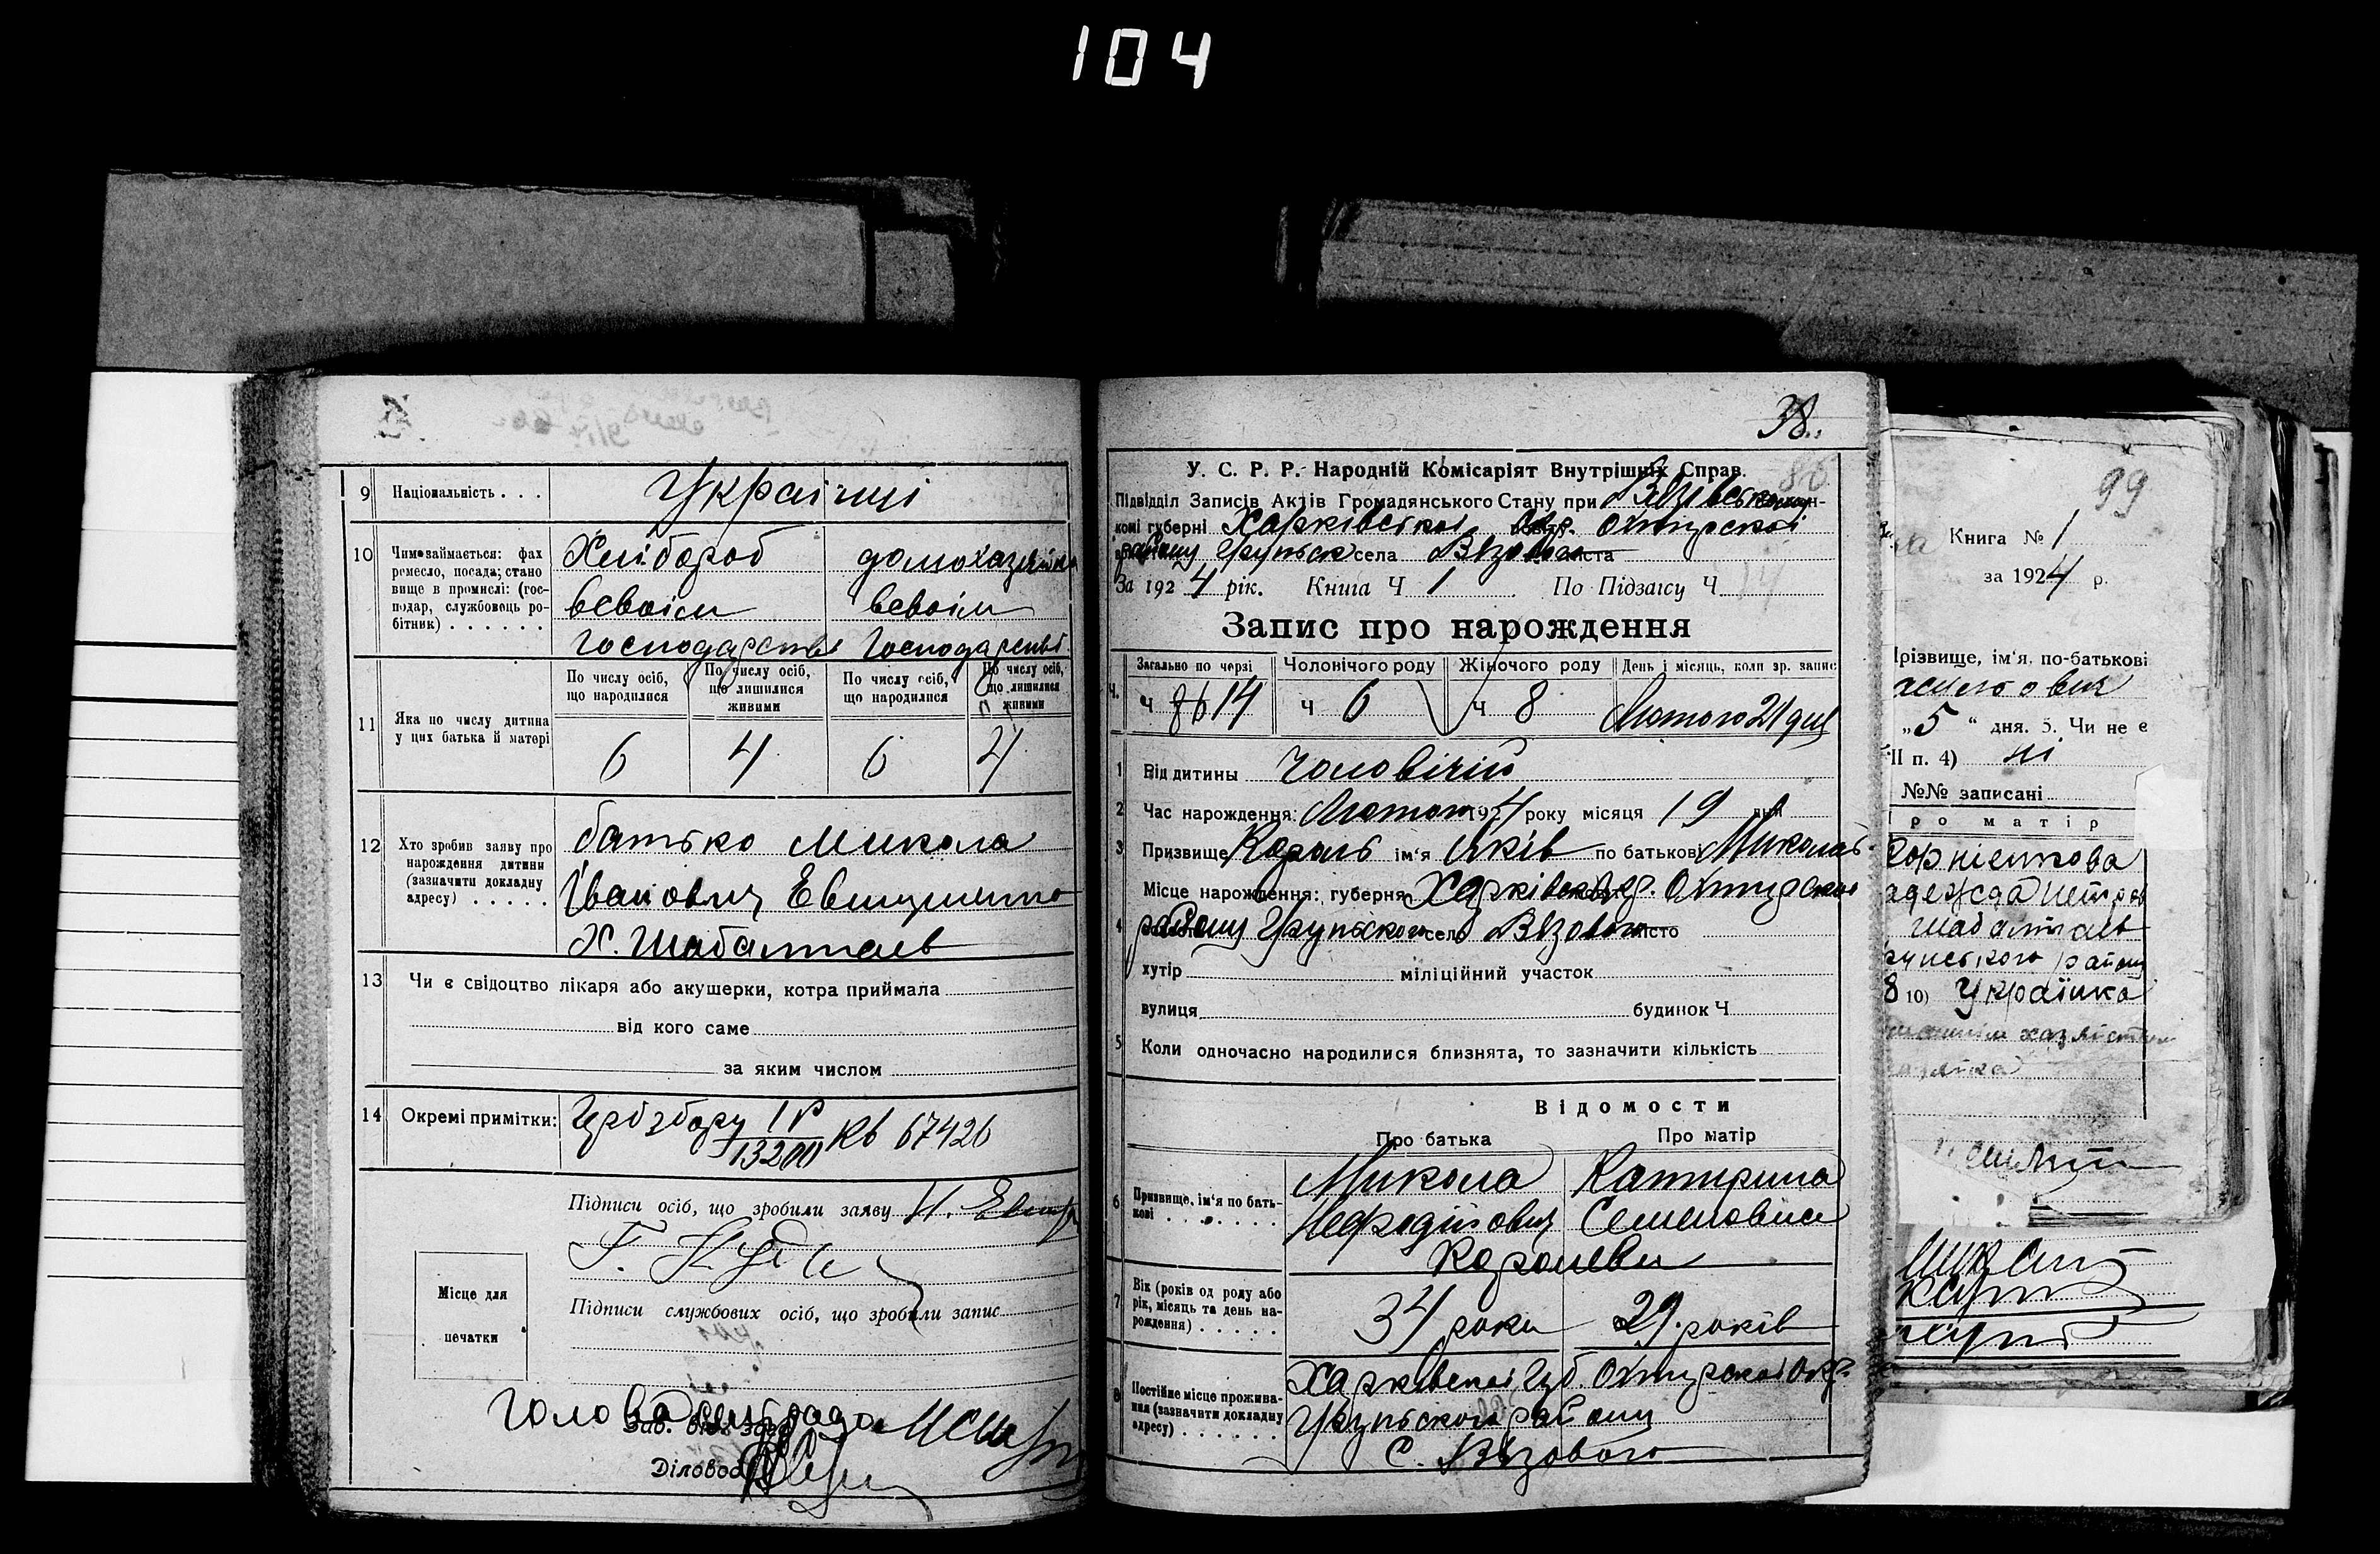 104
9 Національність . . . Українці
10 Чим займається: фах ремесло, посада; становище в промислі: (господар, службовець робітник) . . . . . .
Хлібороб домохазяйка
всвоїм всвоім
Господарстві Господарстві
По числу осіб, що народилися
По числу осіб, що лишилися живими
По числу осіб, що народилися
По числу осіб, що лишилися живими
11 Яка по числу дитина у цих батька й матері
6 4 6 4
12 Хто зробив заяву про нарождення дитини (зазначити докладну адресу) . . . . .
батько Микола
Іванович Евтушенко
Х. Шабалтаев
13 Чи є свідоцтво лікаря або акушерки, котра приймала
від кого саме
за яким числом
14 Окремі примітки: Гербзбору 1 р 13200 Кв 67426
Підписи осіб, що зробили заяву
Місце для печатки
Підписи службових осіб, що зробили запис
Голова сельради
Зав. відд. загс
Діловод
38.
У. С. Р. Р. Народній Комісаріят Внутрішніх Справ.
Підвідділ Записів Актів Громадянського Стану при Вязівському
комі губерні Харківськоі окр. Охтирскої
району Грунськ села Вязового міста
За 1924 рік. Книга Ч 1 По Підзагсу Ч
Запис про нарождення
Загально по черзі Чоловічого роду Жіночого роду День і місяць, коли зр. запис
Ч 14 Ч 6 Ч 8 Лютого 21 дня
1 Від дитины Чоловічій
2 Час нарождення: Лютого 1924 року місяця 19 дня
3 Призвище Король ім'я Яків по батькові Миколаєв
Місце нарождення: губерня Харківська окр. Охтирскоі
4 району Грунського село Вязового місто
хутір міліційний участок
вулиця будинок Ч
5 Коли одночасно народилися близнята, то зазначити кількість
Відомости
Про батька Про матір
6 Призвище, ім'я по батькові . . . . . . .
Микола Катирина
Нефодійович Семеновна
Королеви
7 Вік (років од роду або рік, місяць та день нарождення) . . . . .
34 роки 29 років
8 Постійне місце проживання (зазначити докладну адресу) . . . . . .
Харківскоі Губ. Охтирскоі окр.
Грунського району
С. Вязового
99
Книга № 1
за 1924 р.
Прізвище, ім'я, по-батькові
„5“ дня. 5. Чи не є
II п. 4) ні
№№ записані
Про матір
10) Українка